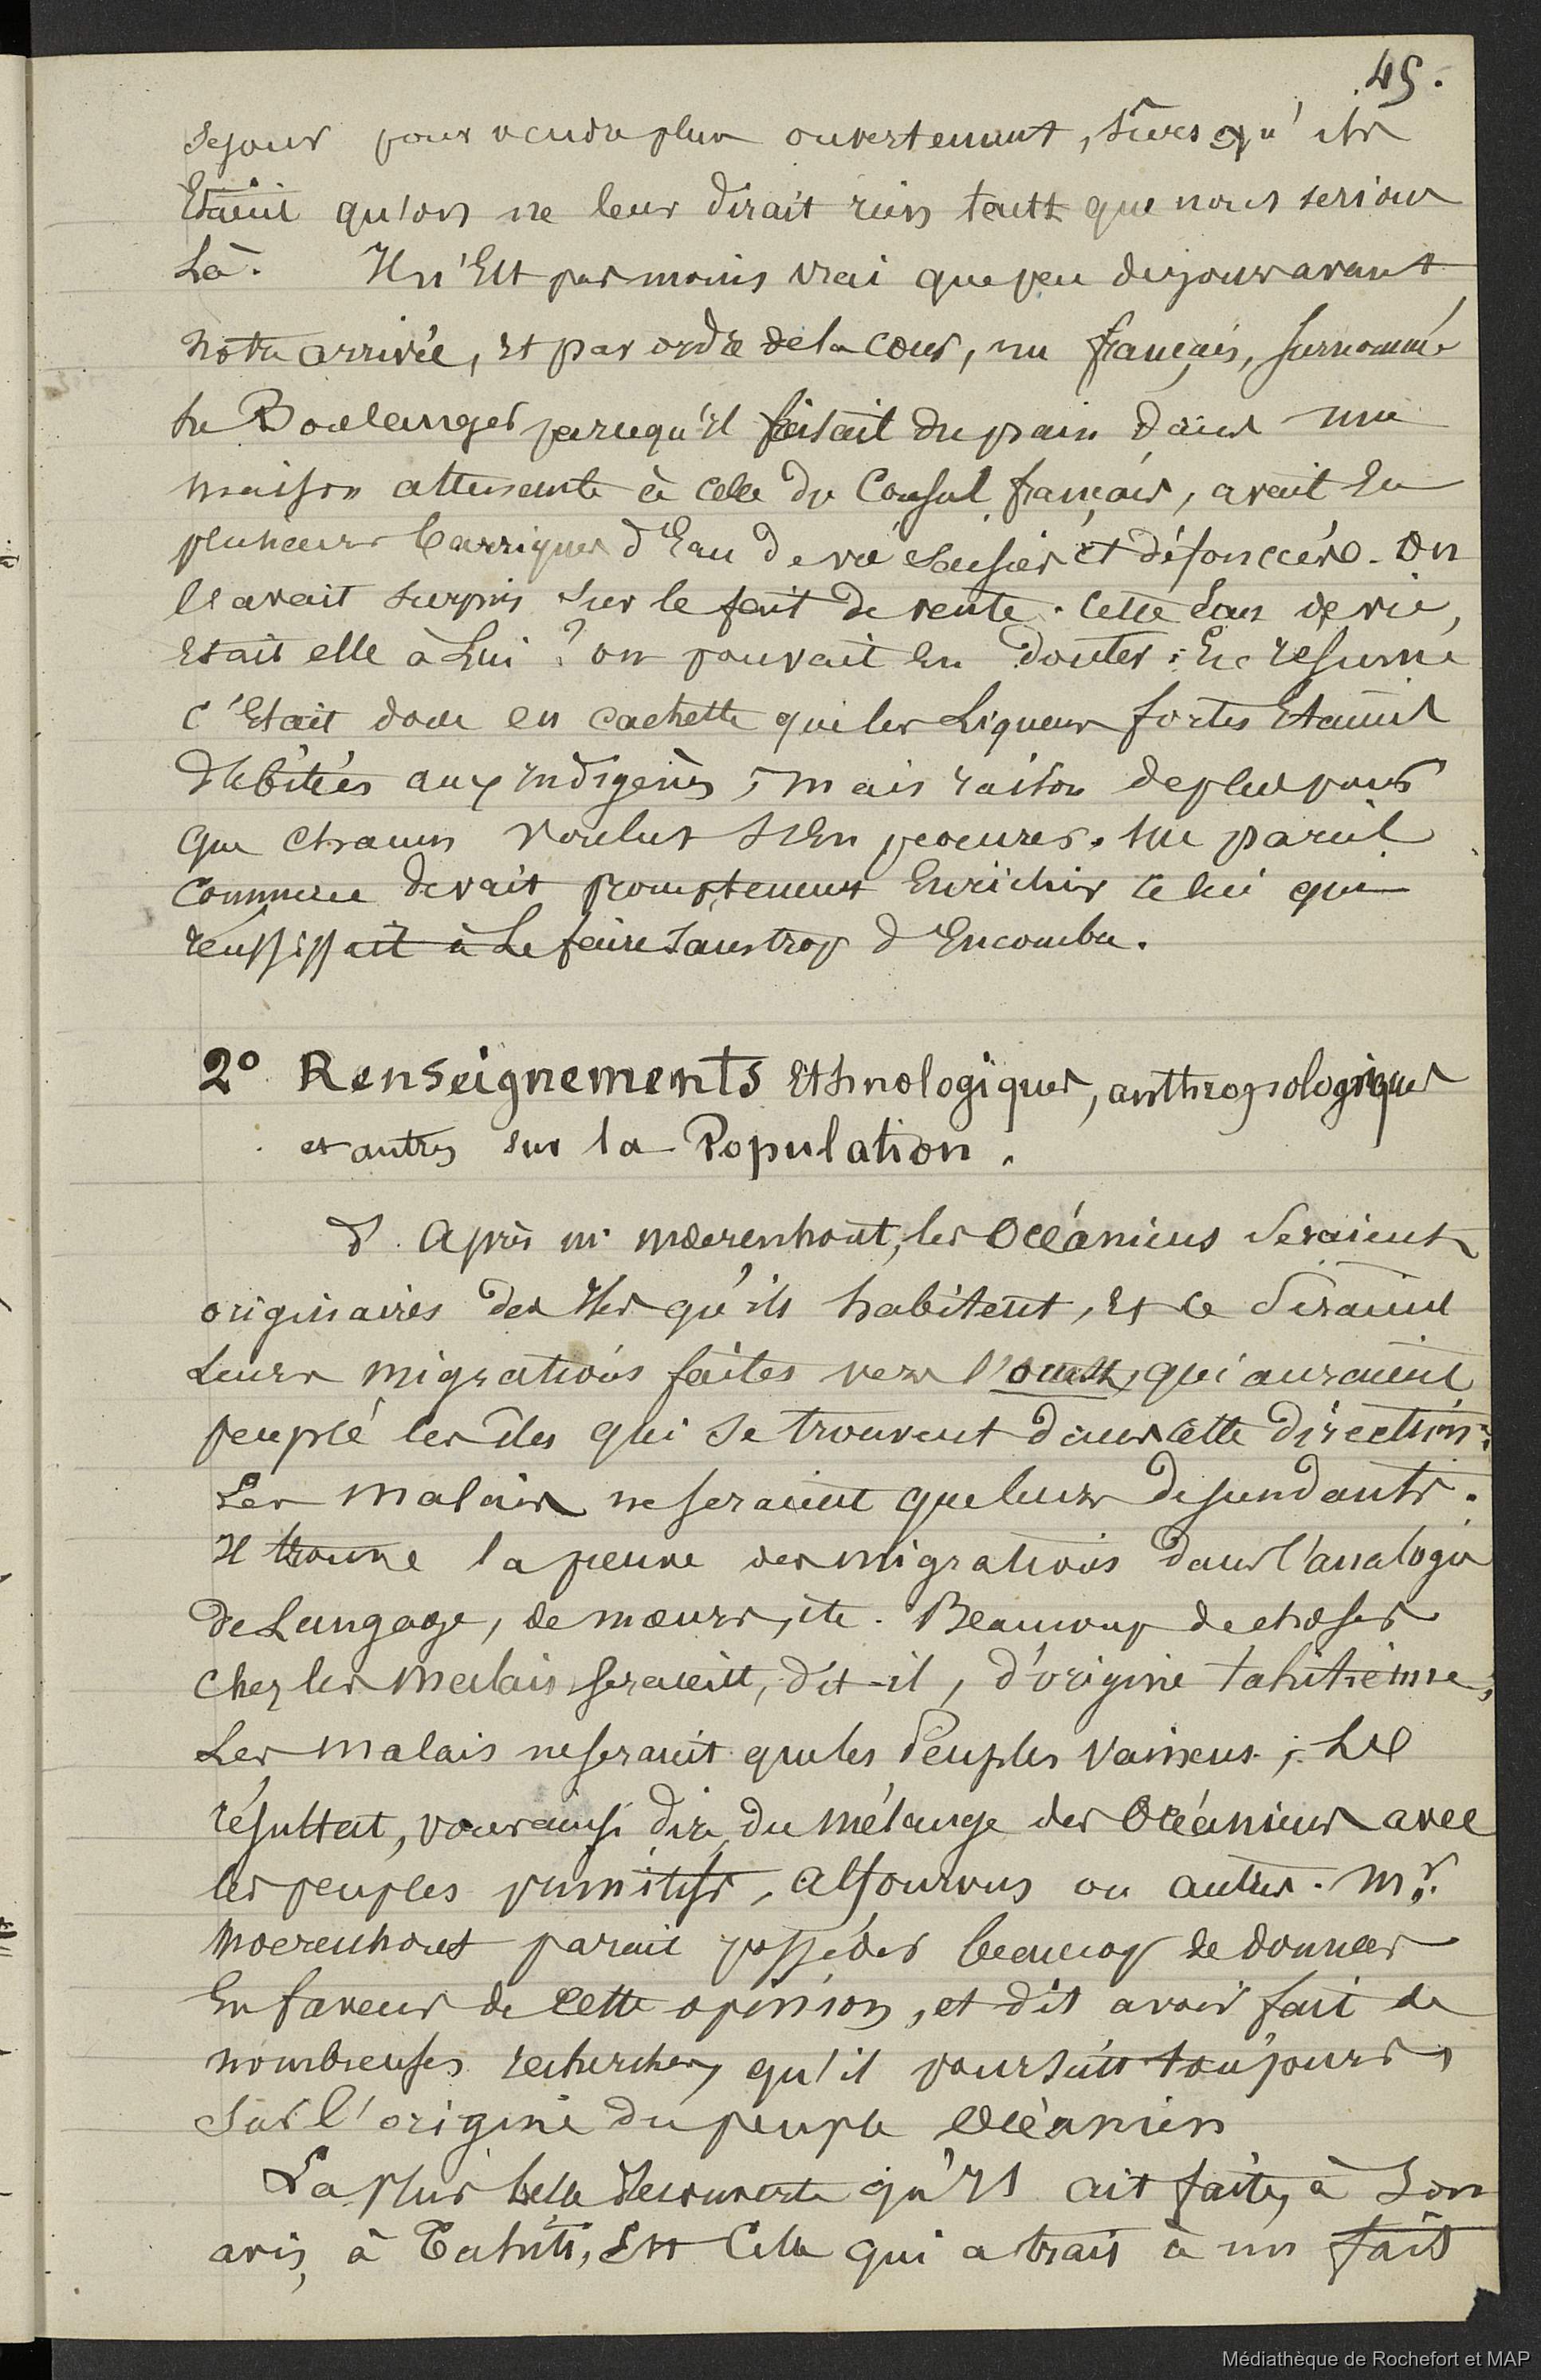 45.
Sejour pour vendre plus ouvertement, sûrs qu'ils
Etaient qu'on ne leur dirait rien tant que nous serions
Là. Il n'Est pas moins vrai que peu de jours avant
notre arrivée, et par ordre de la cour, un français, surnommé
le Boulanger parcequ'il faisait du pain dans une
maison attenante à celle du Consul français, avait Eu
plusieurs barriques d'Eau de vie saisies et défoncées. On
l'avait surpris sur le fait de vente. Cette Eau de vie,
Etait elle à Lui ? on pouvait En douter : En résumé
c'Etait donc en cachette que les Liqueurs fortes Etaient
débitées aux indigènes, mais raison de plus pour
que chacun voulut s'En procurer. Un pareil
Commerce devait promptement Enrichir celui qui
reussissait à Le faire sans trop d'Encombre.
2° Renseignements Ethnologiques, anthropologiques
et autres sur la Population.
d'Après mr Moerenhout, les Océaniens Seraient
originaires des Iles qu'ils habitent, Et ce Seraient
Leurs migrations faites vers l'ouest, qui auraient
peuplé les îles qui Se trouvent dans cette direction.
Les Malais ne seraient que leurs descendants.
Il trouve la preuve des migrations dans l'analogie
de Langage, de mœurs, etc. Beaucoup de choses
chez les Malais seraient, dit-il, d'origine tahitienne,
Les Malais ne seraient que les Peuples vaincus ; Le
résultat, pour ainsi dire, du mélange des Océaniens avec
les peuples primitifs, Alfourous ou autres. Mr.
Moerenhout parait posséder beaucoup de données
En faveur de cette opinion, et dit avoir fait de
nombreuses recherches, qu'il poursuit toujours,
Sur l'origine du peuple Océanien
La plus belle découverte qu'il ait faite, à Son
avis, à Tahiti, Est Celle qui a trait à un fait
Médiathèque de Rochefort et MAP